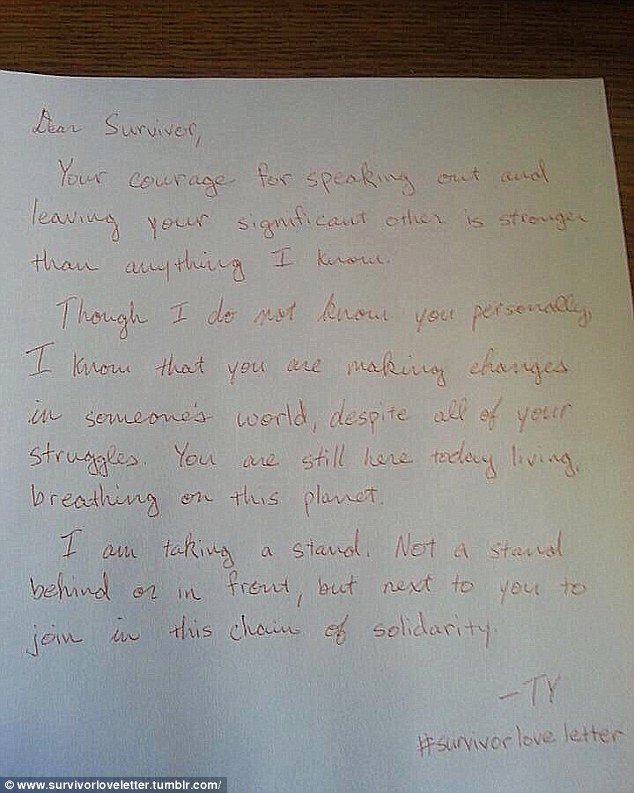 Dear Survivor,
Your courage for speaking out and
leaving your significant other is stronger
than anything I know.
Though I do not know you personally,
I know that you are making changes
in someone's world, despite all of your
struggles. You are still here today living,
breathing on this planet.
I am taking a stand. Not a stand
behind or in front, but next to you to
join in this chain of solidarity.
-TY
#survivorloveletter
© www.survivorloveletter.tumblr.com/